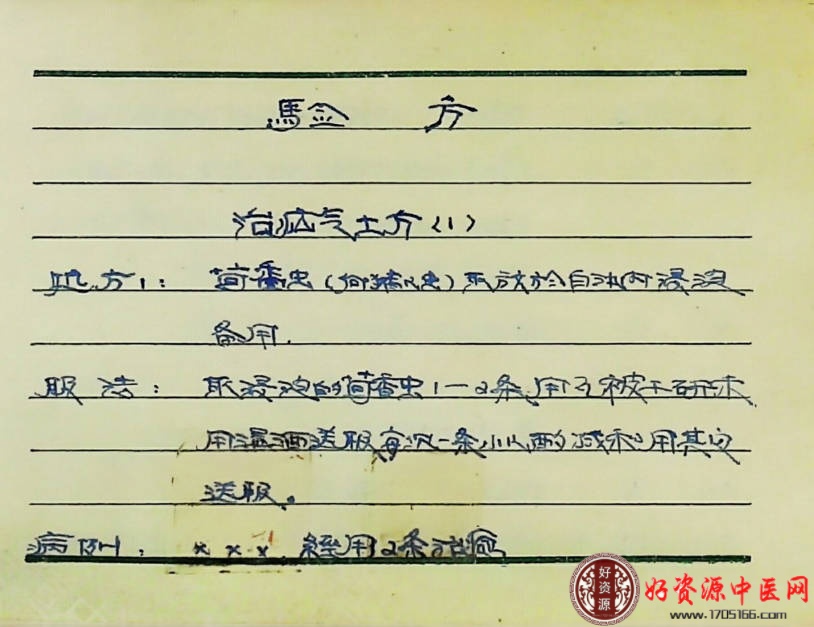 驗 方
治疝气土方(1)
处方1: 茴香虫(茴香心虫)取放於白酒内浸泡
备用.
服法: 取浸泡的茴香虫1—2条,用瓦焙干研末
用温酒送服每次一条小儿酌减
送服。
病例: x x x. 經用12条治癒
好资源
好资源中医网
www.1705166.com